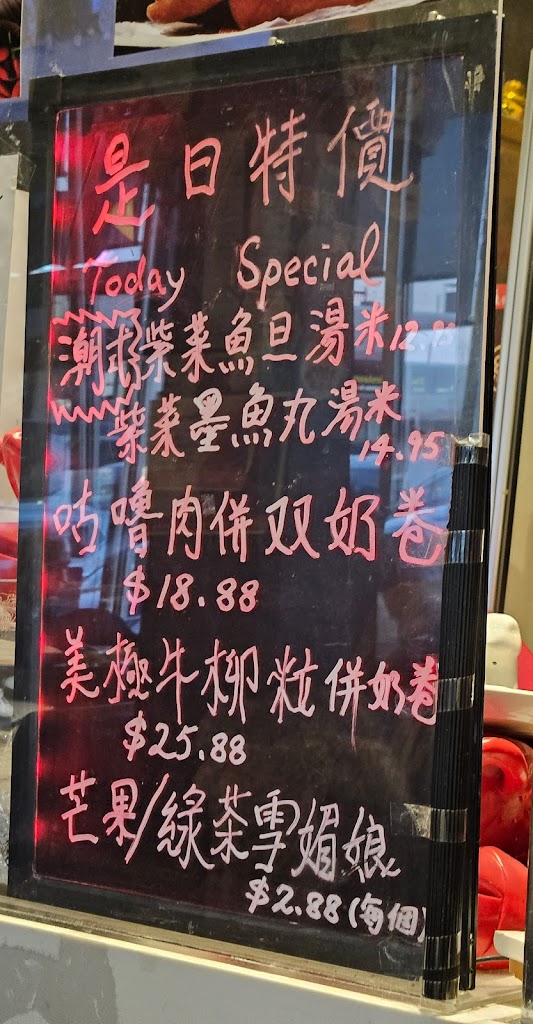 是日特價
Today Special
潮州紫菜魚旦湯米12.95
紫菜墨魚丸湯米
14.95
咕嚕肉併双奶卷
$18.88
美極牛柳粒併奶卷
$25.88
芒果/綠茶雪媚娘
$2.88(每個)